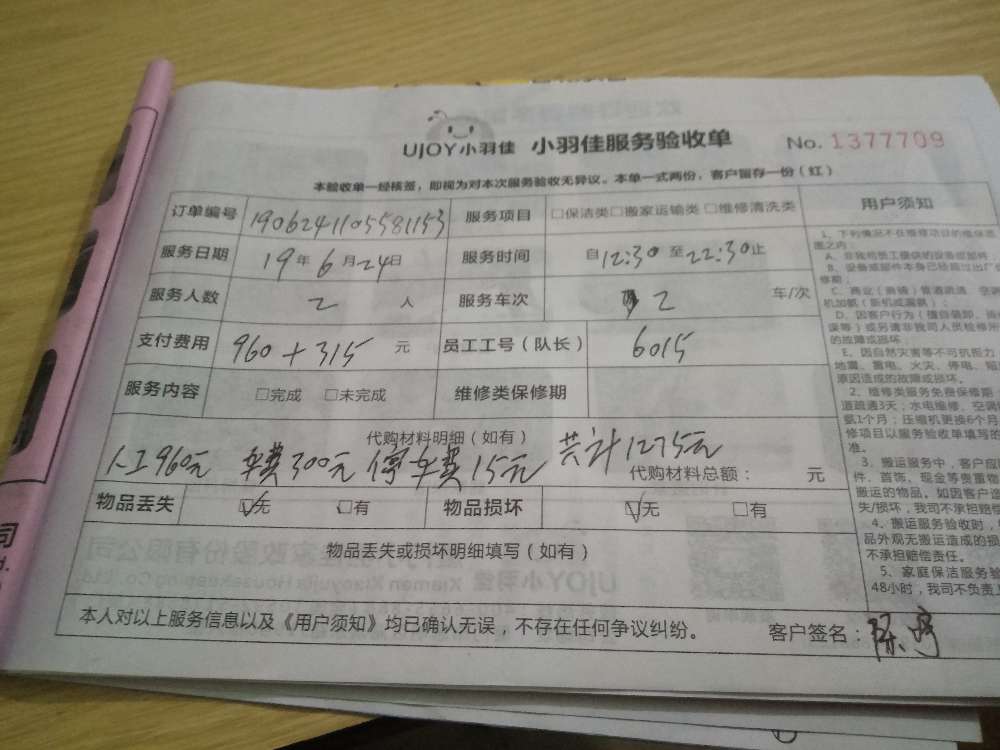 UJOY小羽佳 小羽佳服务验收单 No. 1377709
本验收单一经核签，即视为对本次服务验收无异议。本单一式两份，客户留存一份（红）
订单编号 1906241105581153 服务项目 □保洁类□搬家运输类 □维修清洗类
服务日期 19年6月24日 服务时间 自12:30至22:30止
服务人数 2 人 服务车次 2 车/次
支付费用 960+315 元 员工工号（队长） 6015
服务内容 □完成 □未完成 维修类保修期
代购材料明细（如有）
人工960元 车费300元 停车费15元 共计1275元
代购材料总额： 元
物品丢失 ☑无 □有 物品损坏 ☑无 □有
物品丢失或损坏明细填写（如有）
本人对以上服务信息以及《用户须知》均已确认无误，不存在任何争议纠纷。 客户签名：
用户须知
1、下列情况不在维修项目的维保范
围之内：
A、非我司员工提供的设备或部件
B、设备或部件本身已经超过出厂
修期；
D、因客户行为（擅自装卸、
误等）或另请非我司人员检修
的故障或损坏；
E、因自然灾害等不可抗力，
地震、雷电、火灾、停电、
原因造成的故障或损坏。
2、维修类服务免费保修期：
道疏通3天；水电维修、空调
氨1个月；压缩机更换6个月
修项目以服务验收单填写的
准。
3、搬运服务中，客户应
件、首饰、现金等贵重物
搬运的物品。如因客户
失/损坏，我司不承担赔偿
4、搬运服务验收时，
品外观无搬运造成的损
不承担赔偿责任。
5、家庭保洁服务验
48小时，我司不负责